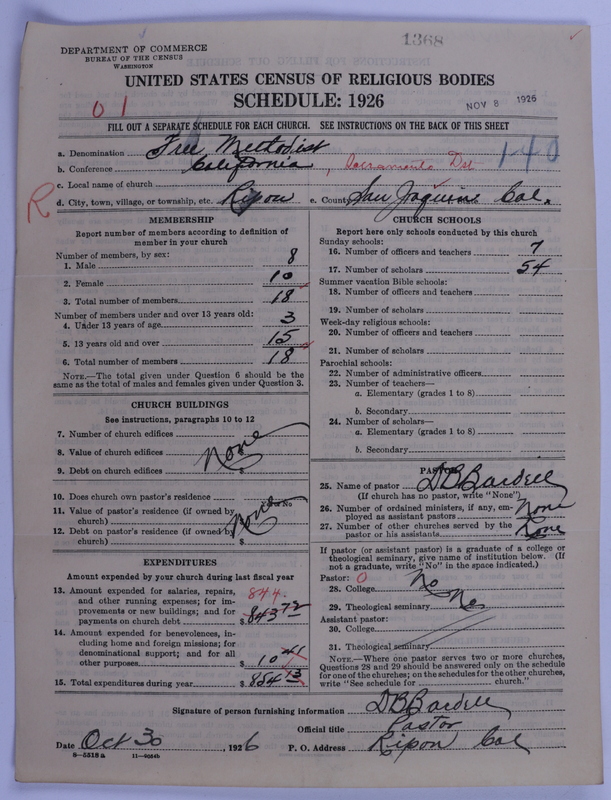 1368
DEPARTMENT OF COMMERCE
BUREAU OF THE CENSUS
WASHINGTON
UNITED STATES CENSUS OF RELIGIOUS BODIES
SCHEDULE: 1926
01
NOV 8 1926
FILL OUT A SEPARATE SCHEDULE FOR EACH CHURCH. SEE INSTRUCTIONS ON THE BACK OF THIS SHEET
a. Denomination Free Methodist
b. Conference California, Sacramento Dst. 140
c. Local name of church
R d. City, town, village, or township, etc. Ripon e. County San Joaquin Cal.
MEMBERSHIP
Report number of members according to definition of member in your church
Number of members, by sex:
1. Male 8
2. Female 10
3. Total number of members 18
Number of members under and over 13 years old:
4. Under 13 years of age 3
5. 13 years old and over 15
6. Total number of members 18
NOTE.—The total given under Question 6 should be
the same as the total of males and females given under Question 3.
CHURCH BUILDINGS
See instructions, paragraphs 10 to 12
7. Number of church edifices
8. Value of church edifices None
9. Debt on church edifices $
10. Does church own pastor's residence
Yes or No
11. Value of pastor's residence (if owned by
church) None
12. Debt on pastor's residence (if owned by
church) $
EXPENDITURES
Amount expended by your church during last fiscal year
13. Amount expended for salaries, repairs,
and other running expenses; for im-
provements or new buildings; and for
payments on church debt $ 843 72
844.
14. Amount expended for benevolences, in-
cluding home and foreign missions; for
denominational support; and for all
other purposes $ 10 41
15. Total expenditures during year $ 854 13
CHURCH SCHOOLS
Report here only schools conducted by this church
Sunday schools:
16. Number of officers and teachers 7
17. Number of scholars 54
Summer vacation Bible schools:
18. Number of officers and teachers
19. Number of scholars
Week-day religious schools:
20. Number of officers and teachers
21. Number of scholars
Parochial schools:
22. Number of administrative officers
23. Number of teachers—
a. Elementary (grades 1 to 8)
b. Secondary
24. Number of scholars—
a. Elementary (grades 1 to 8)
b. Secondary
PASTOR
25. Name of pastor D B Bardell
(If church has no pastor, write "None")
26. Number of ordained ministers, if any, em-
ployed as assistant pastors None
27. Number of other churches served by the
pastor or his assistants None
If pastor (or assistant pastor) is a graduate of a college or
theological seminary, give name of institution below. (If
not a graduate, write "No" in the space indicated.)
Pastor: 0
28. College No
29. Theological seminary No
Assistant pastor:
30. College
31. Theological seminary
NOTE.—Where one pastor serves two or more churches,
Questions 28 and 29 should be answered only on the schedule
for one of the churches; on the schedules for the other churches,
write "See schedule for church."
Signature of person furnishing information D B Bardell
Official title Pastor
Date Oct 30, 1926 P. O. Address Ripon Cal
8—5518a 11—9054b